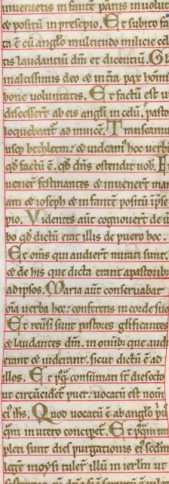 invenietis infante pannis involutu
et positu in presepio. Et subito fa
cta e cu anglo multitudo milicie cel
tis laudantiu dm et dicentiu. Gl
in altissimis deo et in tra pax homi
bone voluntatis. Et factu est ut
discesser ab eis angli in celu. pasto
loquebant ad invice. Transeam
usq bethleem. et videam hoc verb
qd factu e. qd dns ostendit nob. E
vener festinantes et invener mar
am et ioseph et infante positu i pse
pio. Videntes aut cognover de v
bo qd dictu erat illis de puero hoc.
Et oms qui audierit mirati sunt.
et de his que dicta erant a pastorib
ad ipsos. Maria aut conservabat
oia verba hec. conferens in corde suo
Et reversi sunt pastores glificantes
et laudantes dm. in omib que audi
erant et viderant. sicut dictu e ad
illos. Et pq consumati st dies octo
ut circucidet puer. vocatu est nom
ei ihs. Quod vocatu e ab anglo pi
qm in utero conciper. Et pqm im
pleti sunt dies purgationis ei scdm
lege moysi tuler illu in ierlm ut